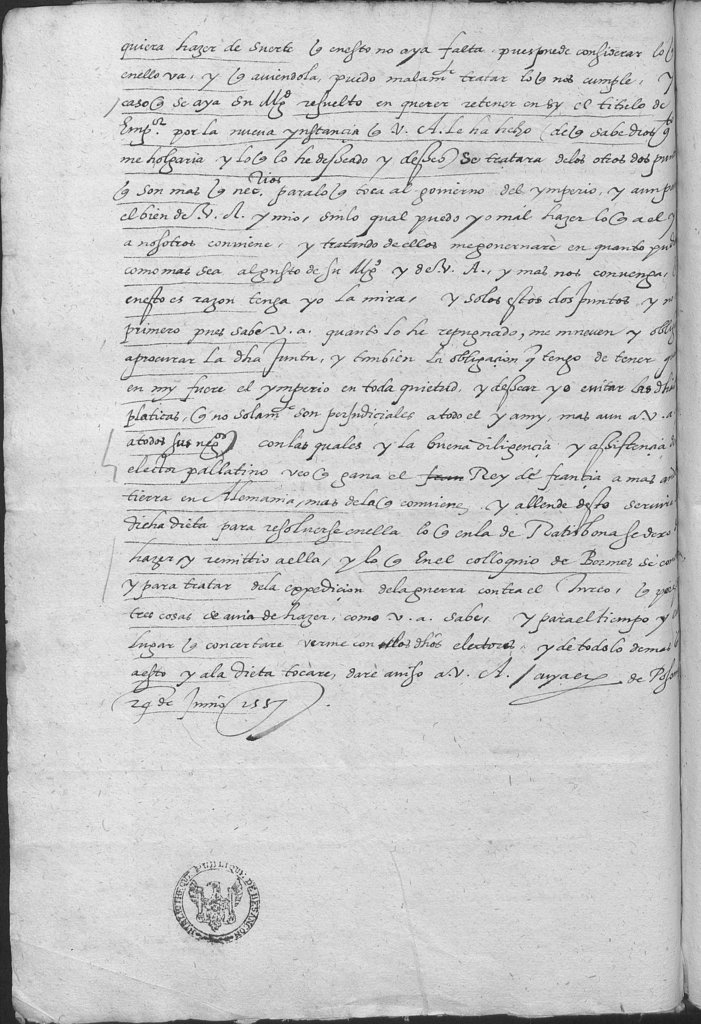 quiera hazer de suerte q̃ en esto no aya falta pues puede considerar lo q̃
en ello va, y q̃ aviendola, puedo malam.te tratar lo q̃ nos cumple, y
caso q̃ se aya su Mg.d resuelto en querer retener en sy el titulo de
Emp.or por la nueva ynstancia q̃ V. A. le ha hecho (de q̃ sabe dios q̃
me holgaria y lo q̃ lo he desseado y desseo) se tratara de los otros dos pun
q̃ son mas q̃ nec.rios para lo q̃ toca al govierno del ymperio, y aun p
el bien de V. A. y mio, sin lo qual puedo yo mal hazer lo q̃ a el y
a nosotros conviene, y tratando de ellos me governarè en quanto pu
como mas sea al gusto de su Mg.d y de V. A., y mas nos convenga,
en esto es razon tenga yo la mira, y solos estos dos puntos y n
primero pues sabe V. a. quanto lo he repugnado, me mueven y obli
a procurar la dha Junta, y tambien la obligacion q̃ tengo de tener q
en my fuere el ymperio en toda quietud, y dessear yo evitar las dh
platicas, q̃ no solam.te son perjudiciales a todo el y a my, mas aun a V. a
a todos sus neg.os con las quales y la buena diligencia y assistencia d
electòr pallatino veo q̃ gana el Rey de francia a mas an
tierra en Alemania, mas de la q̃ conviene, y allende desto servir
dicha dieta para resolverse en ella lo q̃ en la de Ratisbona se dexo
hazer y remittio a ella, y lo q̃ en el colloquio de Bormes se co
y para tratar de la expedicion de la guerra contra el Turco, q̃ p
tres cosas se avia de hazer, como V. a. sabe, y para el tiempo y
lugar q̃ concertare verme con los dhos electores, y de todo lo demas
a esto y a la dieta tocàre, darè aviso a V. A. / cuya ex de Poson
29 de Junio 1557
BIBLIOTHEQUE PUBLIQUE DE BESANÇON